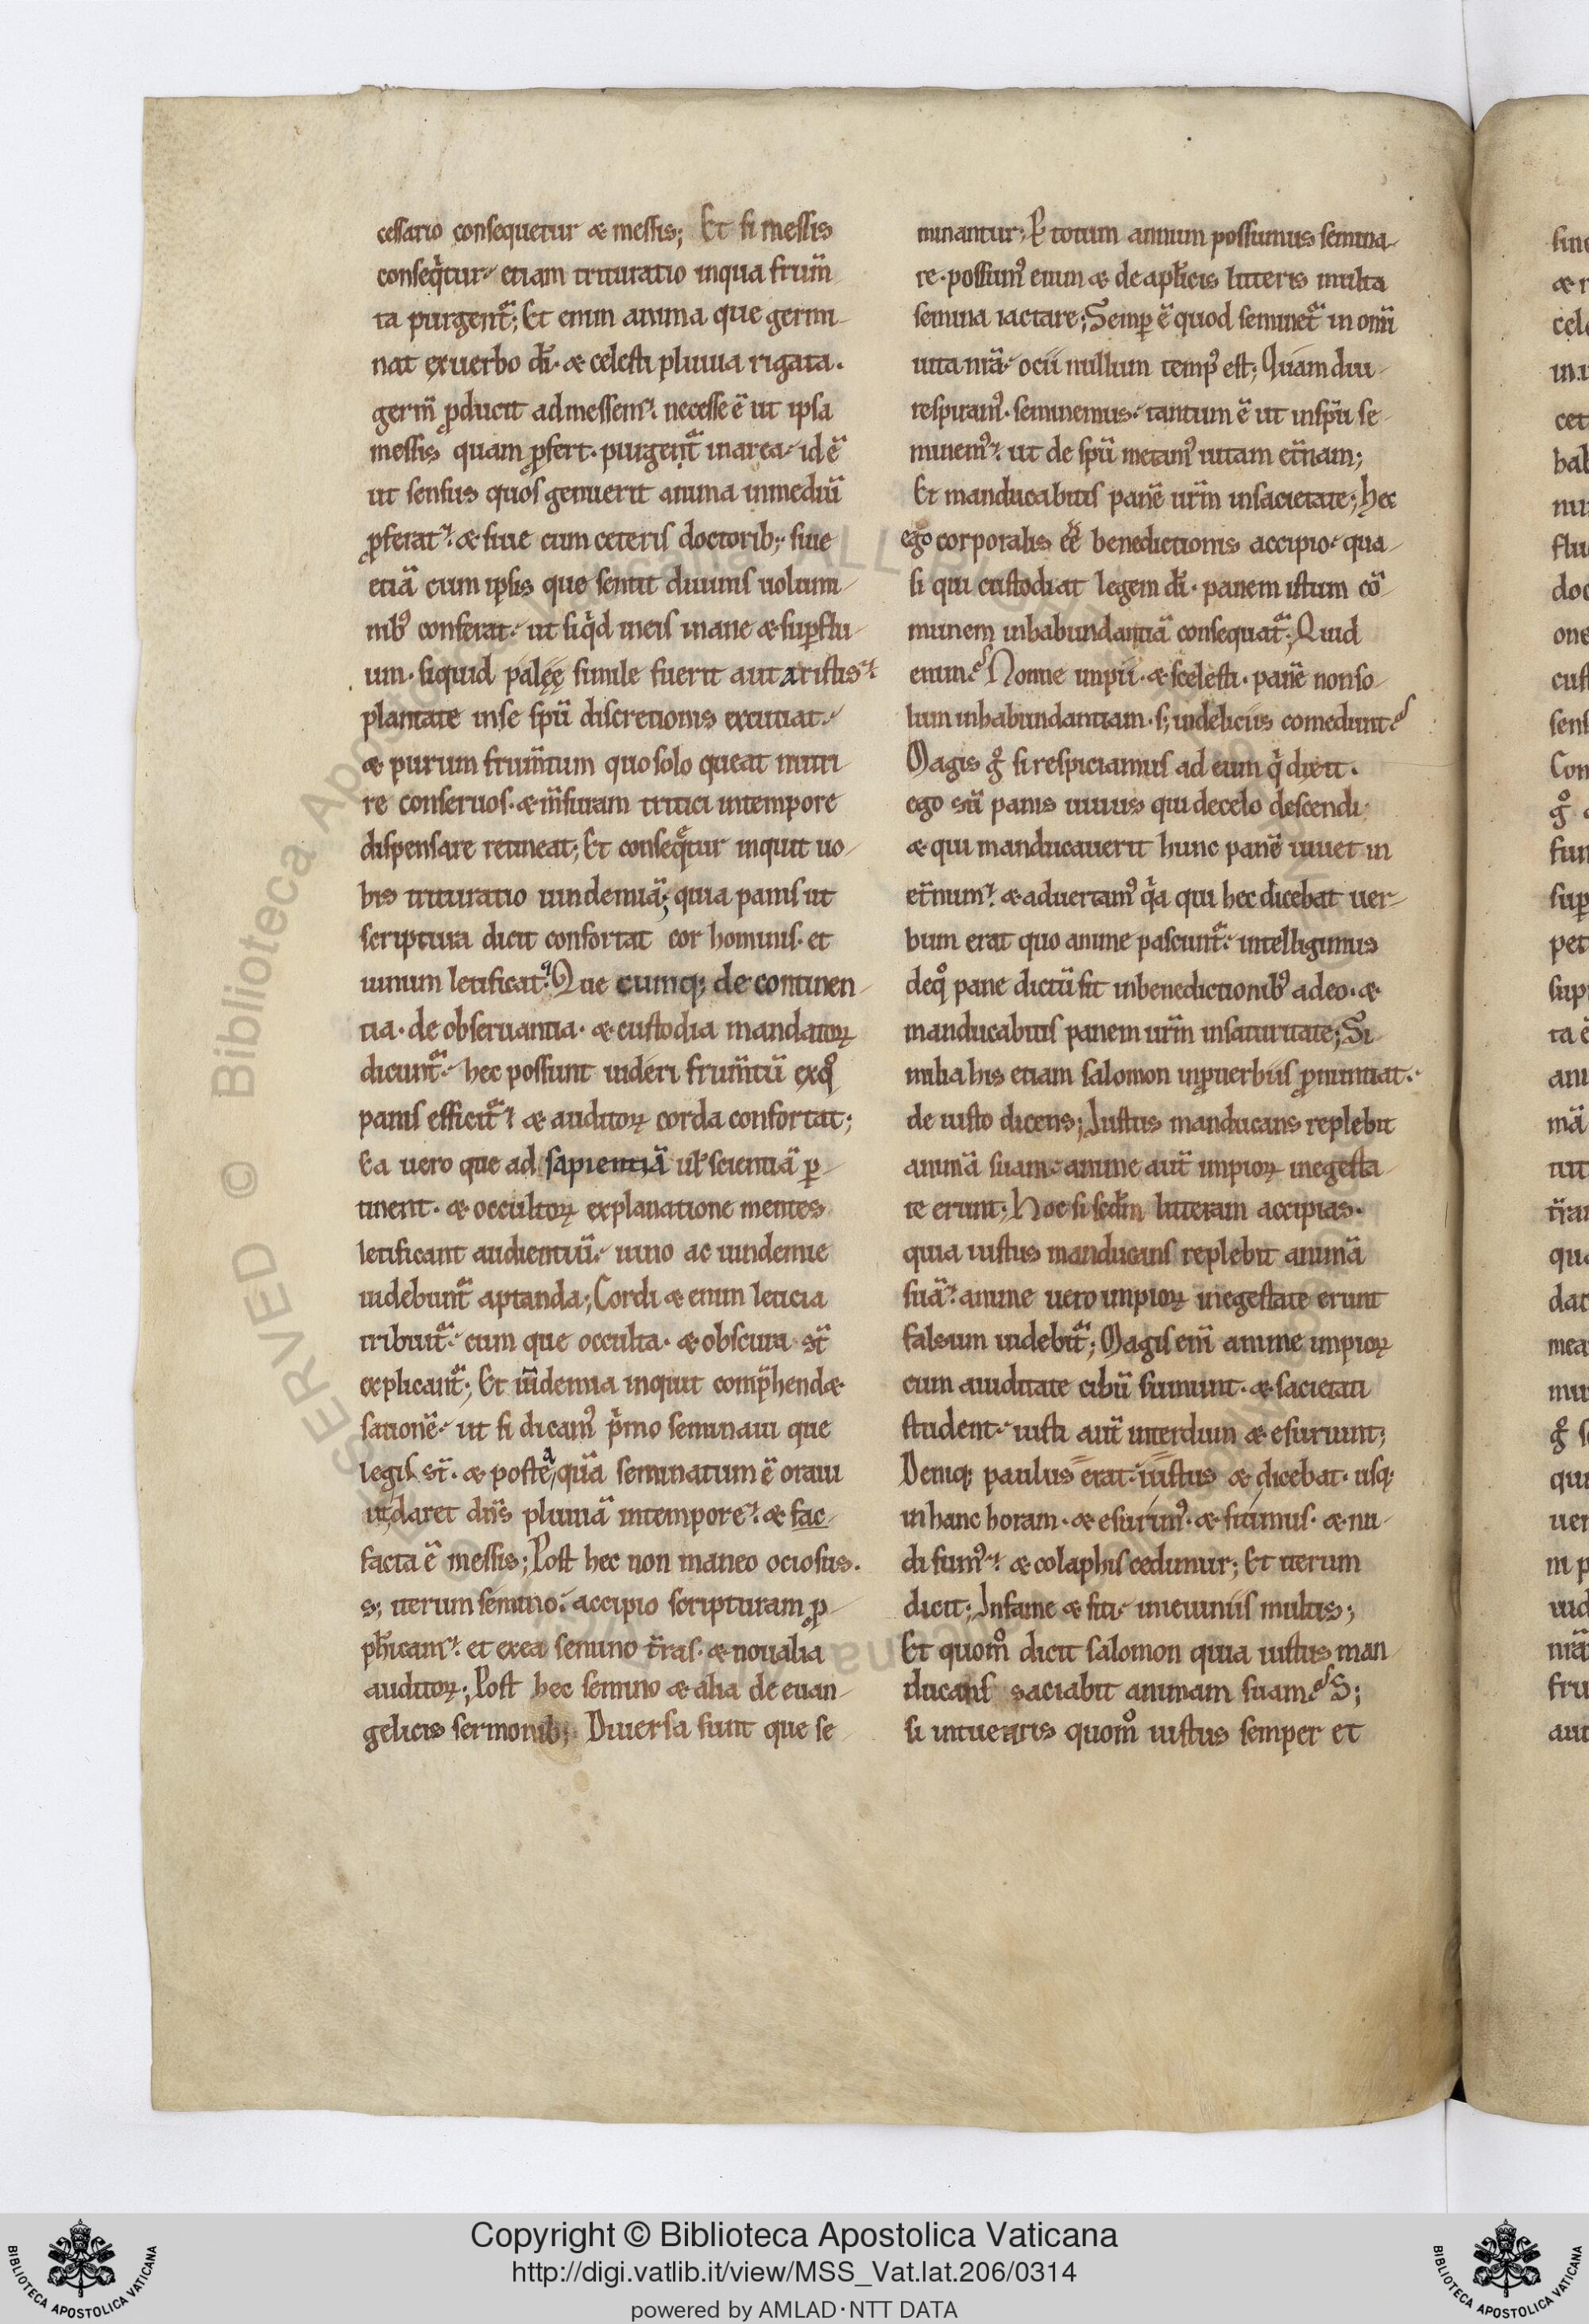 cessario consequetur & messis; Et si messis
conseq̇tur. etiam trituratio inqua frum̄
ta purgentᷓ; Et enim anima que germi-
nat exuerbo dī. & celesti pluuia rigata.
germ̄ ꝓducit admessem. necesse ē ut ipsa
messis quam ꝓfert. purgentᷓ inarea. id ē
ut sensus quos genuerit anima inmediū
ꝓferat. & siue cum ceteris doctorib; siue
etiā cum ipsis que sentit diuinis uolumi-
nibꝰ conferat. ut siq̇d meis inane & suꝑflu-
um. siquid palęę simile fuerit aut aristis.
plantate inse spū discretionis excutiat.
& purum frum̄tum quo solo queat nutri-
re conseruos. & m̄suram tritici intempore
dispensare retineat; Et conseq̄tur inquit uo-
bis trituratio uindemiā; quia panis ut
scriptura dicit confortat cor hominis. et
uinum letificat. Que cumq; de continen-
tia. de obseruantia. & custodia mandatoꝝ
dicuntᷓ. hec possunt uideri frum̄tū exqͦ
panis efficitᷓ. & auditoꝝ corda confortat;
Ea uero que ad sapientiā ul̄ scientiā ꝑ-
tinent. & occultoꝝ explanatione mentes
letificant audientiū. uino ac uindemie
uidebuntᷓ aptanda; Cordi & enim leticia
tribuitᷓ. cum que occulta. & obscura st̄
explicantᷓ; Et uīdemia inquit comp̄hend&
sationē. ut si dicamꝰ p̄mo seminaui que
legis st̄. & postea quā seminatum ē oraui
ut daret dn̄s pluuiā intempore. & fac-
facta ē messis; Post hec non maneo ociosus.
s; iterum semino. accipio scripturam ꝓ-
ph̄icam. et exea semino t̄ras. & noualia
auditoꝝ; Post hec semino & alia de euan-
gelicis sermonib; Diuersa sunt que se-
minantur; P totum annum possumus semina-
re. possumꝰ enim & de apl̄icis litteris multa
semina iactare; Semꝑ ē quod seminetᷓ in omī
uita nr̄a. ocii nullum tempꝰ est; Quam diu
respiramꝰ. seminemus. tantum ē ut inspū se-
minemꝰ. ut de spū metamꝰ uitam et̄nam;
Et manducabitis panē ur̄m insacietate; hec
ego corporalis eē benedictionis accipio. qua-
si qui custodiat legem dī. panem istum cō-
munem inhabundantiā consequatᷓ; Quid
enim? Nonne impii. & scelesti. panē nonso-
lum inhabundantiam. s; indeliciis comedunt?
Magis gͦ si respiciamus ad eum q̇ dicit.
ego sū panis uiuus qui decelo descendi
& qui manducauerit hunc panē uiuet in
et̄num. & aduertamꝰ q̇a qui hec dicebat uer-
bum erat quo anime pascuntᷓ. intelligimus
deqͦ pane dictū sit inbenedictionibꝰ adeo. &
manducabitis panem ur̄m insaturitate; Si-
milia his etiam salomon inꝓuerbiis ꝓnuntiat.
de iusto dicens; Iustus manducans replebit
animā suam. anime aut̄ impioꝝ inegesta-
te erunt; Hoc si scd̄m litteram accipias.
quia iustus manducans replebit animā
suā. anime uero impioꝝ inegestate erunt
falsum uidebitᷓ; Magis enī anime impioꝝ
cum auiditate cibū sumunt. & sacietati
student. iusti aut̄ interdum & esuriunt;
Deniq; paulus erat iustus & dicebat. usq;
in hanc horam. & esurimꝰ. & sitimus. & nu-
di sumꝰ. & colaphis cedimur; Et iterum
dicit; Infame & siti. inieiuniis multis;
Et quom̊ dicit salomon quia iustus man-
ducans saciabit animam suam? S;
si intuearis quom̊ iustus semper et
Copyright © Biblioteca Apostolica Vaticana
http://digi.vatlib.it/view/MSS_Vat.lat.206/0314
powered by AMLAD·NTT DATA
BIBLIOTECA APOSTOLICA VATICANA
BIBLIOTECA APOSTOLICA VATICANA